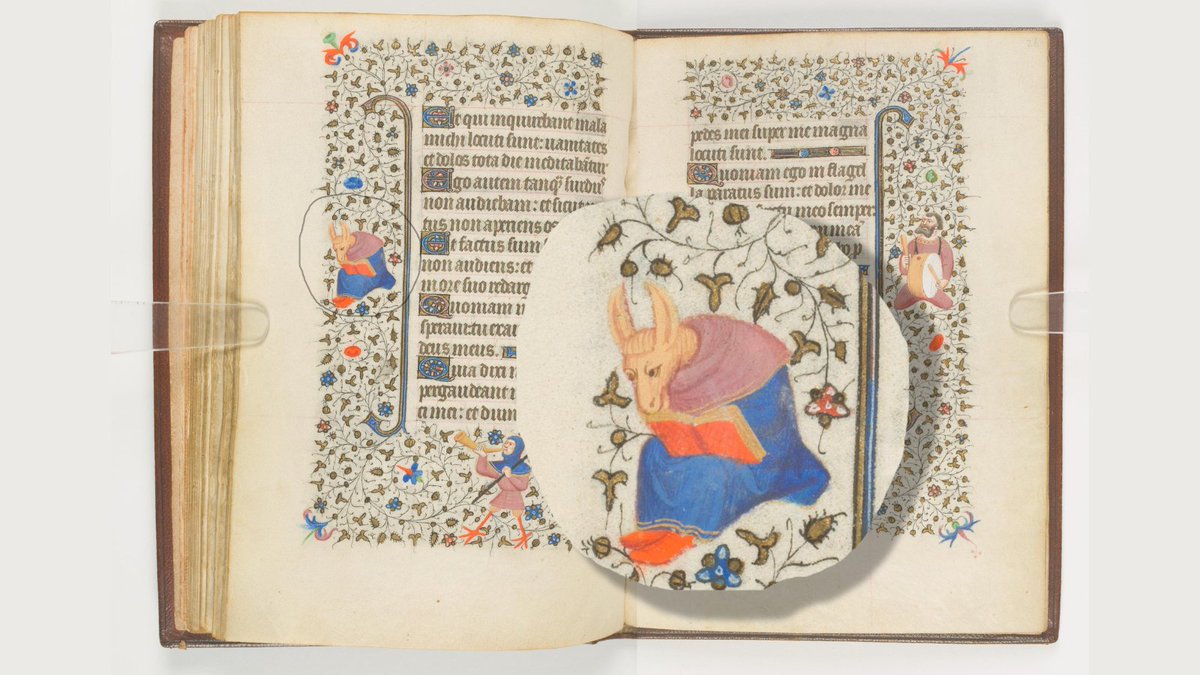 Et qui inquirebant mala
michi locuti sunt: uanitates
et dolos tota die meditabātur
Ego autem tanq̄ surdu
non audiebam: et sicut
tus non aperiens os
Et factus sum
non audiens: et
in ore suo redarg
Quoniam
speraui: tu exau
deus meus.
Quia dixi
pergaudeant
ci mei: et dum
pedes mei super me magna
locuti sunt.
Quoniam ego in flagel
la paratus sum: et dolor me
meo semper
mea